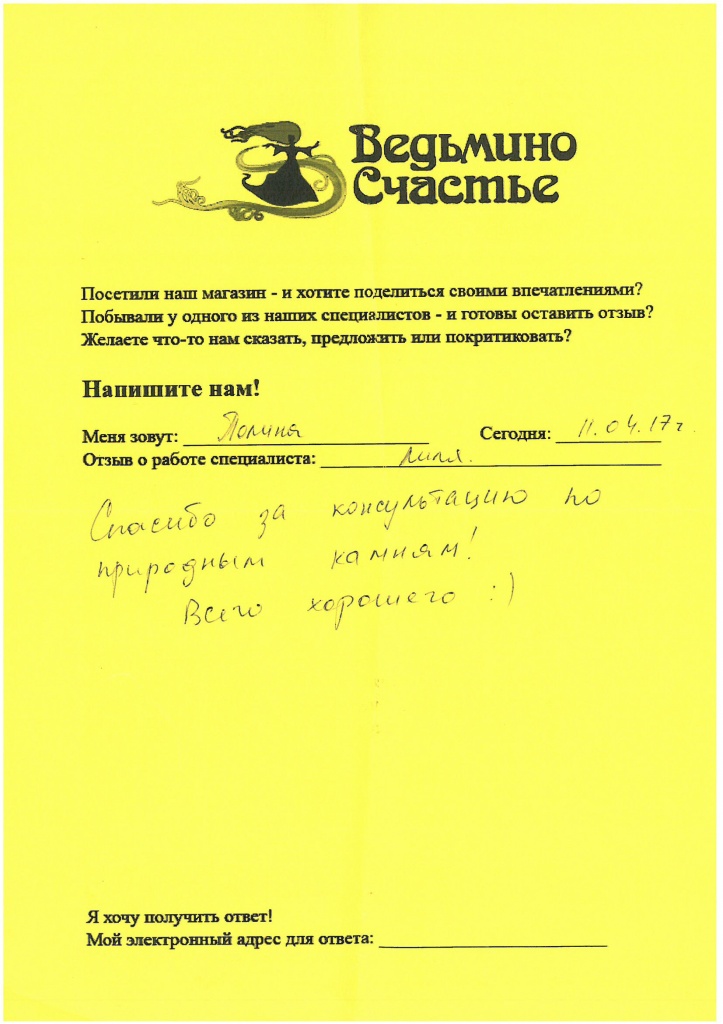 Ведьмино
Счастье
Посетили наш магазин - и хотите поделиться своими впечатлениями?
Побывали у одного из наших специалистов - и готовы оставить отзыв?
Желаете что-то нам сказать, предложить или покритиковать?
Напишите нам!
Меня зовут: Полина Сегодня: 11.04.17г
Отзыв о работе специалиста: Лиля.
Спасибо за консультацию по
природным камням!
Всего хорошего :)
Я хочу получить ответ!
Мой электронный адрес для ответа: